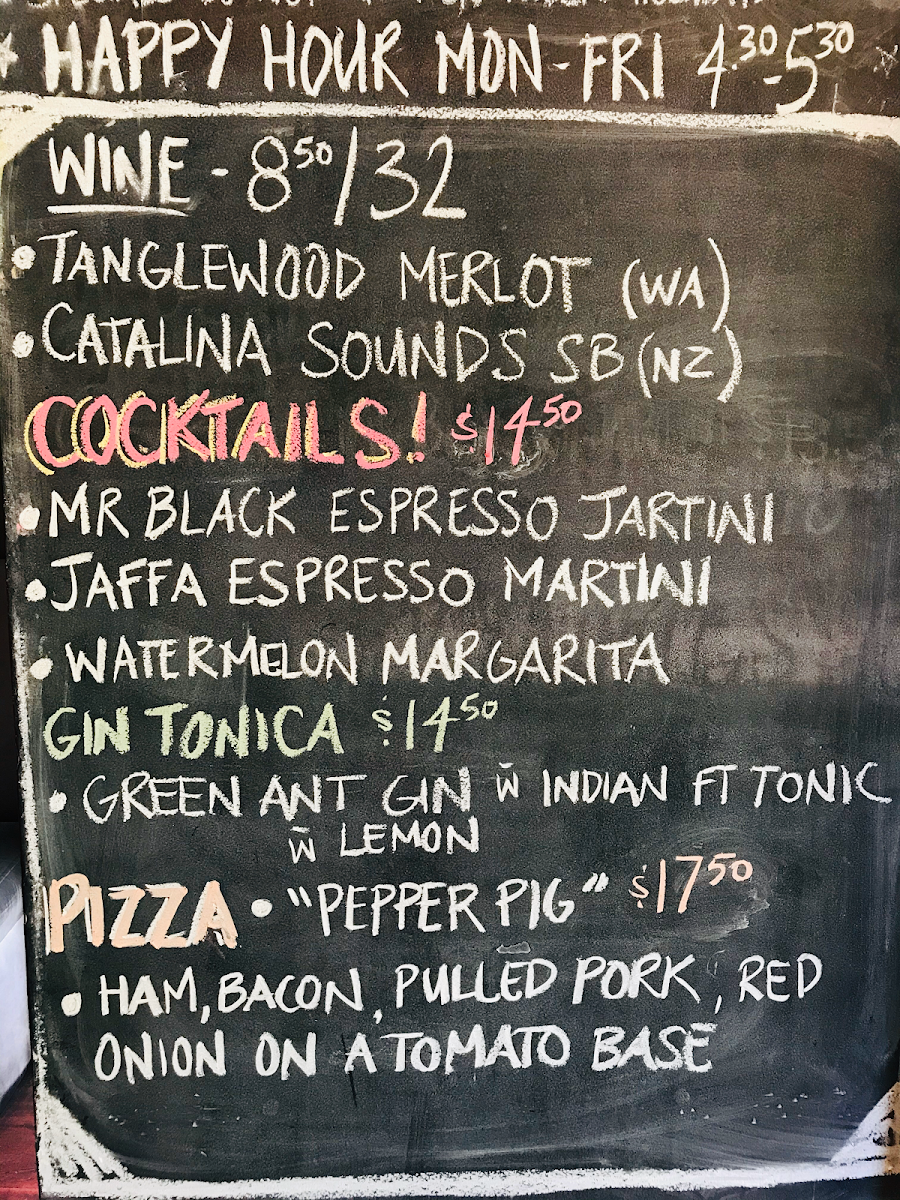 HAPPY HOUR MON-FRI 4.30-5.30
WINE - 8 50/32
• TANGLEWOOD MERLOT (WA)
• CATALINA SOUNDS SB (NZ)
COCKTAILS! $14 50
• MR BLACK ESPRESSO JARTINI
• JAFFA ESPRESSO MARTINI
• WATERMELON MARGARITA
GIN TONICA $14 50
• GREEN ANT GIN w̄ INDIAN FT TONIC
w̄ LEMON
PIZZA • "PEPPER PIG" $17 50
• HAM, BACON, PULLED PORK, RED
ONION ON A TOMATO BASE